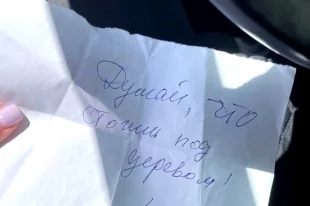 Думай, что
под
деревом!
!